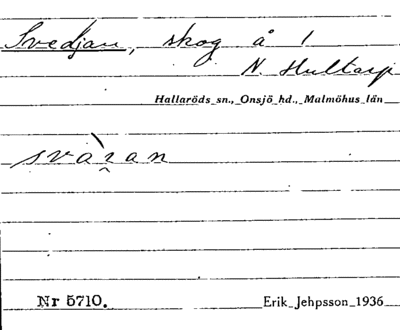 Svedjan, skog å 1
N. Hultarp
Hallaröds sn., Onsjö hd., Malmöhus län
Nr 5710.
Erik Jehpsson 1936